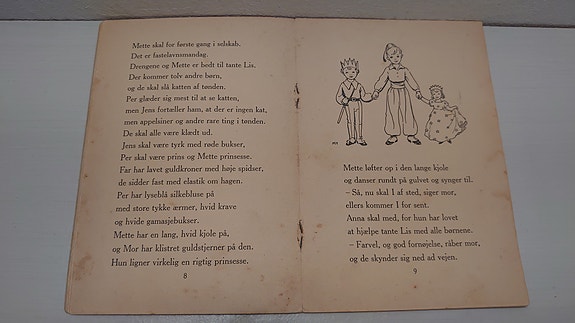 Mette skal for første gang i selskab.
Det er fastelavnsmandag.
Drengene og Mette er bedt til tante Lis.
Der kommer tolv andre børn,
og de skal slå katten af tønden.
Per glæder sig mest til at se katten,
men Jens fortæller ham, at der er ingen kat,
men appelsiner og andre rare ting i tønden.
De skal alle være klædt ud.
Jens skal være tyrk med røde bukser,
Per skal være prins og Mette prinsesse.
Far har lavet guldkroner med høje spidser,
de sidder fast med elastik om hagen.
Per har lyseblå silkebluse på
med store tykke ærmer, hvid krave
og hvide gamasjebukser.
Mette har en lang, hvid kjole på,
og Mor har klistret guldstjerner på den.
Hun ligner virkelig en rigtig prinsesse.
8
Mette løfter op i den lange kjole
og danser rundt på gulvet og synger til.
– Så, nu skal I af sted, siger mor,
ellers kommer I for sent.
Anna skal med, for hun har lovet
at hjælpe tante Lis med alle børnene.
– Farvel, og god fornøjelse, råber mor,
og de skynder sig ned ad vejen.
9